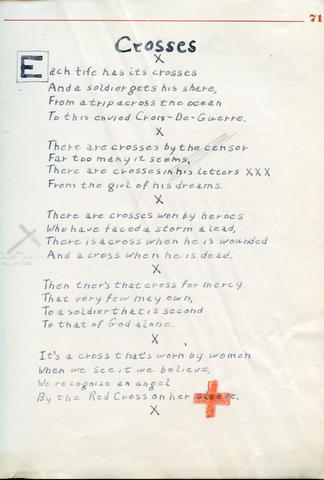 71
Crosses
X
Each life has its crosses
And a soldier gets his share,
From a trip across the ocean
To this envied Croix-De-Guerre.
X
There are crosses by the censor
Far too many it seems,
There are crosses in his letters XXX
From the girl of his dreams.
X
There are crosses won by heroes
Who have faced a storm a lead,
There is a cross when he is wounded
And a cross when he is dead.
X
Then ther's that cross for mercy
That very few may own,
To a soldier that is second
To that of God alone.
X
It's a cross that's worn by women
When we see it we believe,
We recognize an angel
By the Red Cross on her sleeve.
X